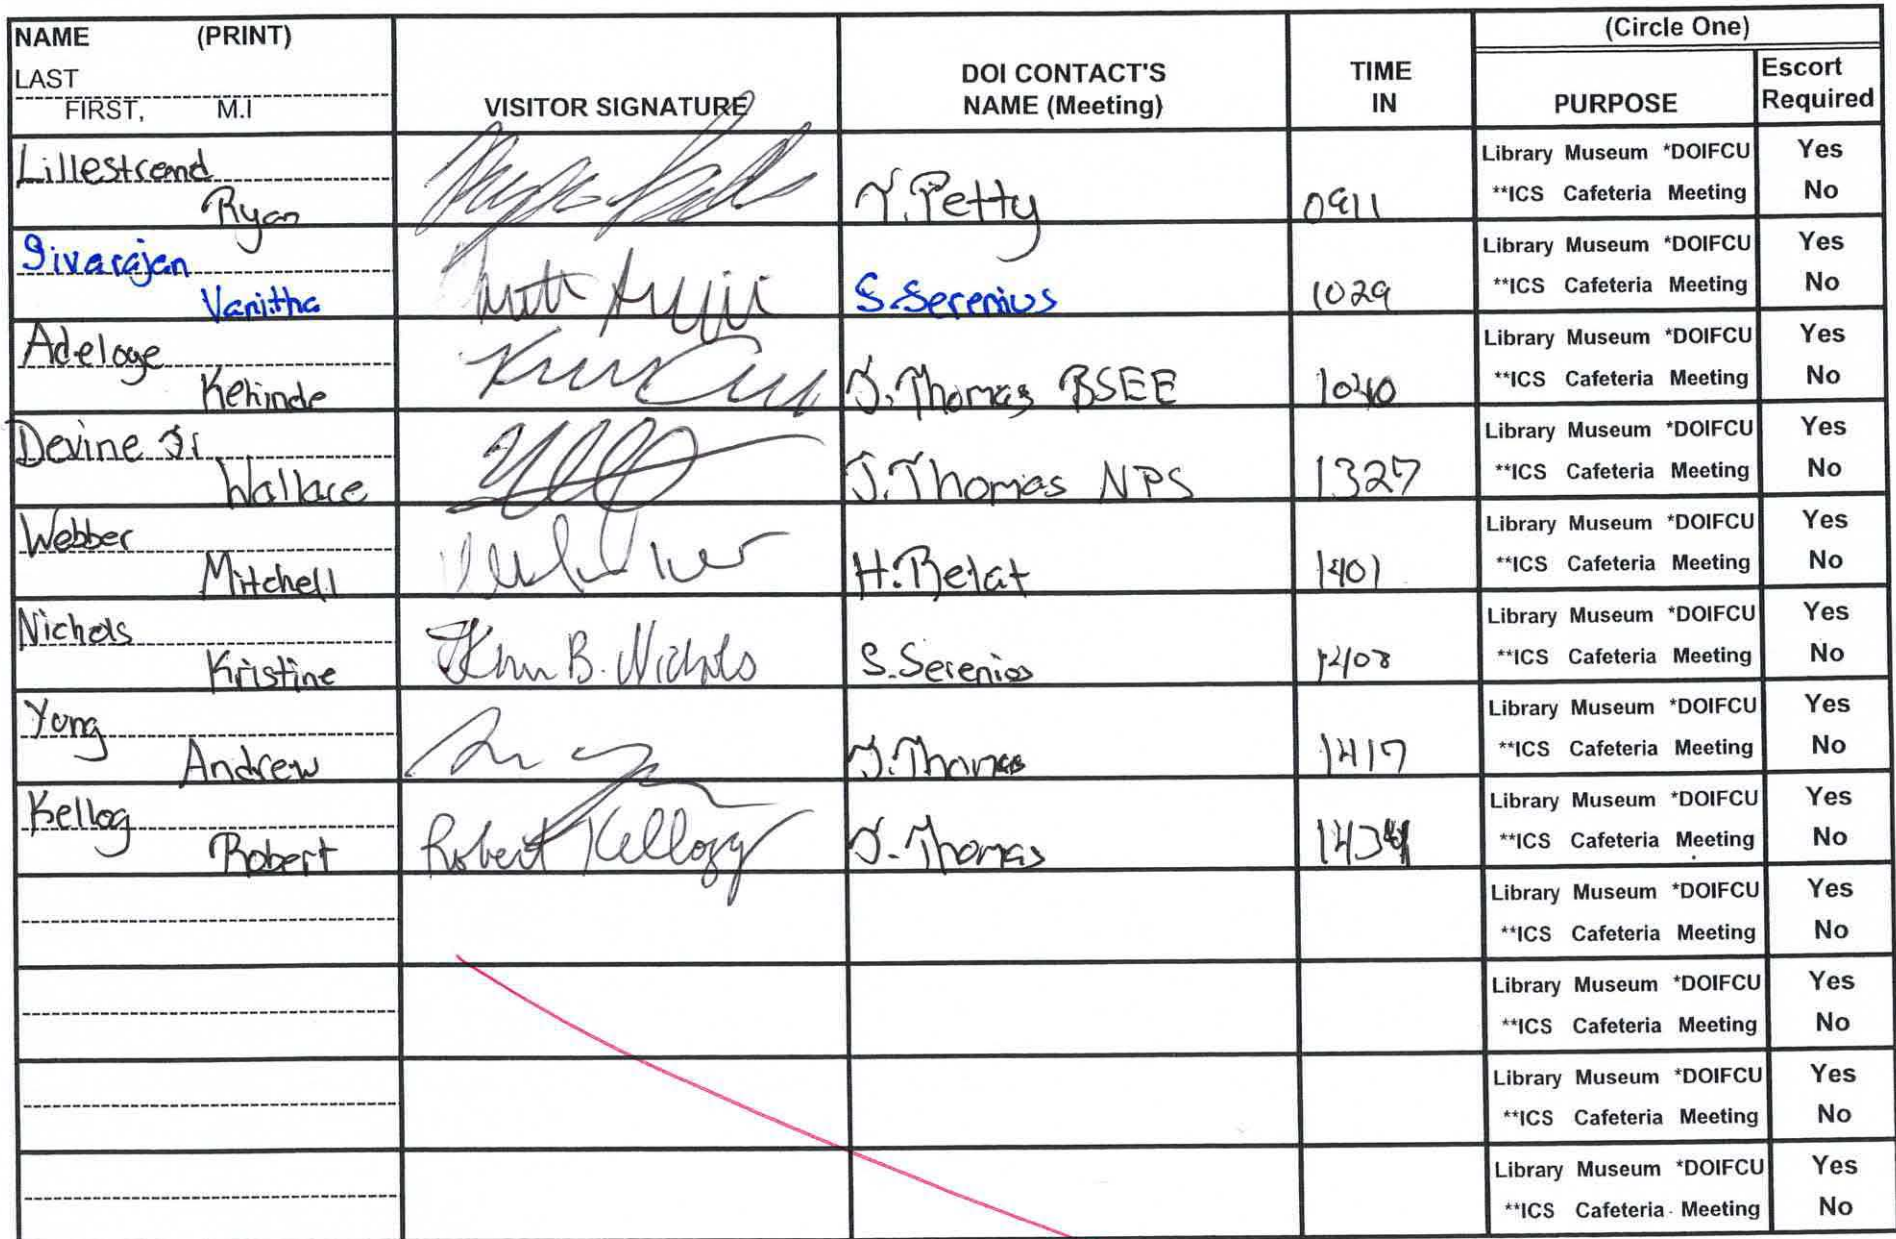 NAME (PRINT)
LAST
FIRST, M.I
VISITOR SIGNATURE
DOI CONTACT'S
NAME (Meeting)
TIME
IN
(Circle One)
PURPOSE
Escort
Required
Lillestrand
Ryan
T. Petty
0911
Library Museum *DOIFCU Yes
**ICS Cafeteria Meeting No
Sivarajan
Vanitha
S. Serenius
1029
Library Museum *DOIFCU Yes
**ICS Cafeteria Meeting No
Adeloge
Kehinde
J. Thomas BSEE
1040
Library Museum *DOIFCU Yes
**ICS Cafeteria Meeting No
Devine Jr
Wallace
J. Thomas NPS
1327
Library Museum *DOIFCU Yes
**ICS Cafeteria Meeting No
Webber
Mitchell
H. Relat
1401
Library Museum *DOIFCU Yes
**ICS Cafeteria Meeting No
Nichols
Kristine
B. Nichols
S. Serenios
1408
Library Museum *DOIFCU Yes
**ICS Cafeteria Meeting No
Yong
Andrew
J. Thomas
1417
Library Museum *DOIFCU Yes
**ICS Cafeteria Meeting No
Kellog
Robert
Robert Kellogg
J. Thomas
Library Museum *DOIFCU Yes
**ICS Cafeteria Meeting No
Library Museum *DOIFCU Yes
**ICS Cafeteria Meeting No
Library Museum *DOIFCU Yes
**ICS Cafeteria Meeting No
Library Museum *DOIFCU Yes
**ICS Cafeteria Meeting No
Library Museum *DOIFCU Yes
**ICS Cafeteria Meeting No